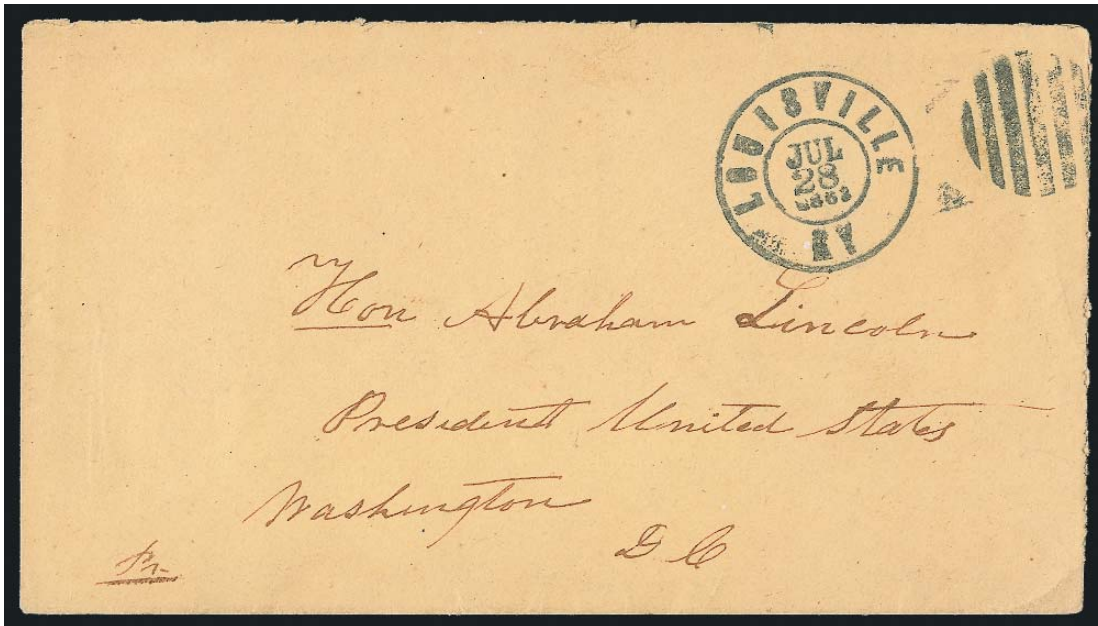 LOUISVILLE
JUL
28
KY
Hon Abraham Lincoln
President United States
Washington
D C